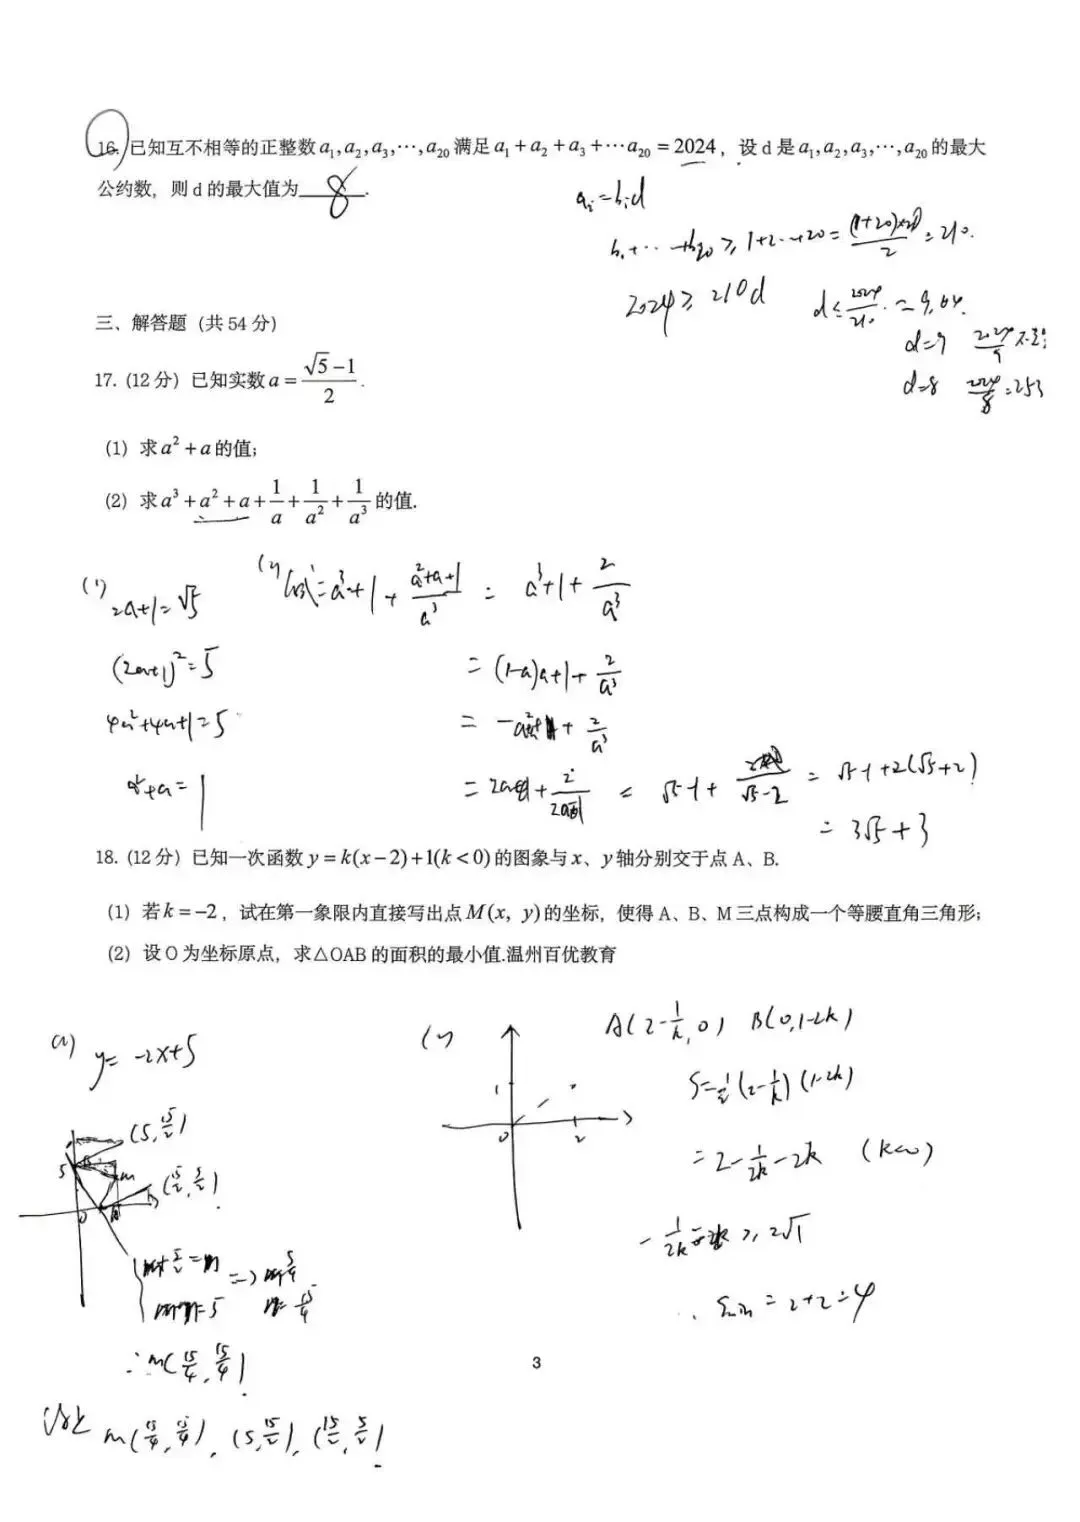 16. 已知互不相等的正整数 a₁,a₂,a₃,⋯,a₂₀ 满足 a₁+a₂+a₃+⋯a₂₀=2024，设 d 是 a₁,a₂,a₃,⋯,a₂₀ 的最大
公约数，则 d 的最大值为 8 .
aᵢ=bᵢd
b₁+⋯+b₂₀≥1+2⋯+20=(1+20)×20/2=210.
2024≥210d d≤2024/210≈9.64.
d=9 2024/9
d=8 2024/8=253
三、解答题（共 54 分）
17. (12 分）已知实数 a=(√5−1)/2.
(1) 求 a²+a 的值;
(2) 求 a³+a²+a+1/a+1/a²+1/a³ 的值.
(1) 2a+1=√5
(2a+1)²=5
4a²+4a+1=5
a²+a=1
(2) 原式=a³+1+(a²+a+1)/a³=a³+1+2/a³
=(1-a)a+1+2/a³
=√5-1+2(√5+2)
=3√5+3
18. (12 分）已知一次函数 y=k(x−2)+1(k<0) 的图象与 x、y 轴分别交于点 A、B.
(1) 若 k=−2，试在第一象限内直接写出点 M(x, y) 的坐标，使得 A、B、M 三点构成一个等腰直角三角形;
(2) 设 O 为坐标原点，求△OAB 的面积的最小值.温州百优教育
(1) y=-2x+5
(5,15/2)
5
M
(15/2,5/2)
0
∴M(15/4,15/4)
综上 M(15/4,15/4), (5,15/2), (15/2,5/2)
(2)
1
0
2
A(2-1/k,0) B(0,1-2k)
S=½(2-1/k)(1-2k)
=2-1/2k-2k (k<0)
-1/2k-2k≥2√1
∴Smin=2+2=4
3